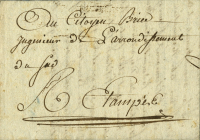 Du Citoyen Brice
Ingenieur de L'arrondissement
du Sud
Etampes